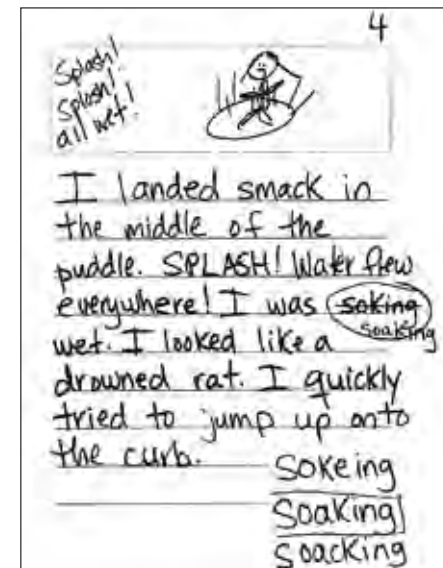 4
Splash!
Splash!
all wet!
I landed smack in
the middle of the
puddle. SPLASH! Water flew
everywhere! I was soking
soaking
wet. I looked like a
drowned rat. I quickly
tried to jump up onto
the curb.
Sokeing
Soaking
Soacking